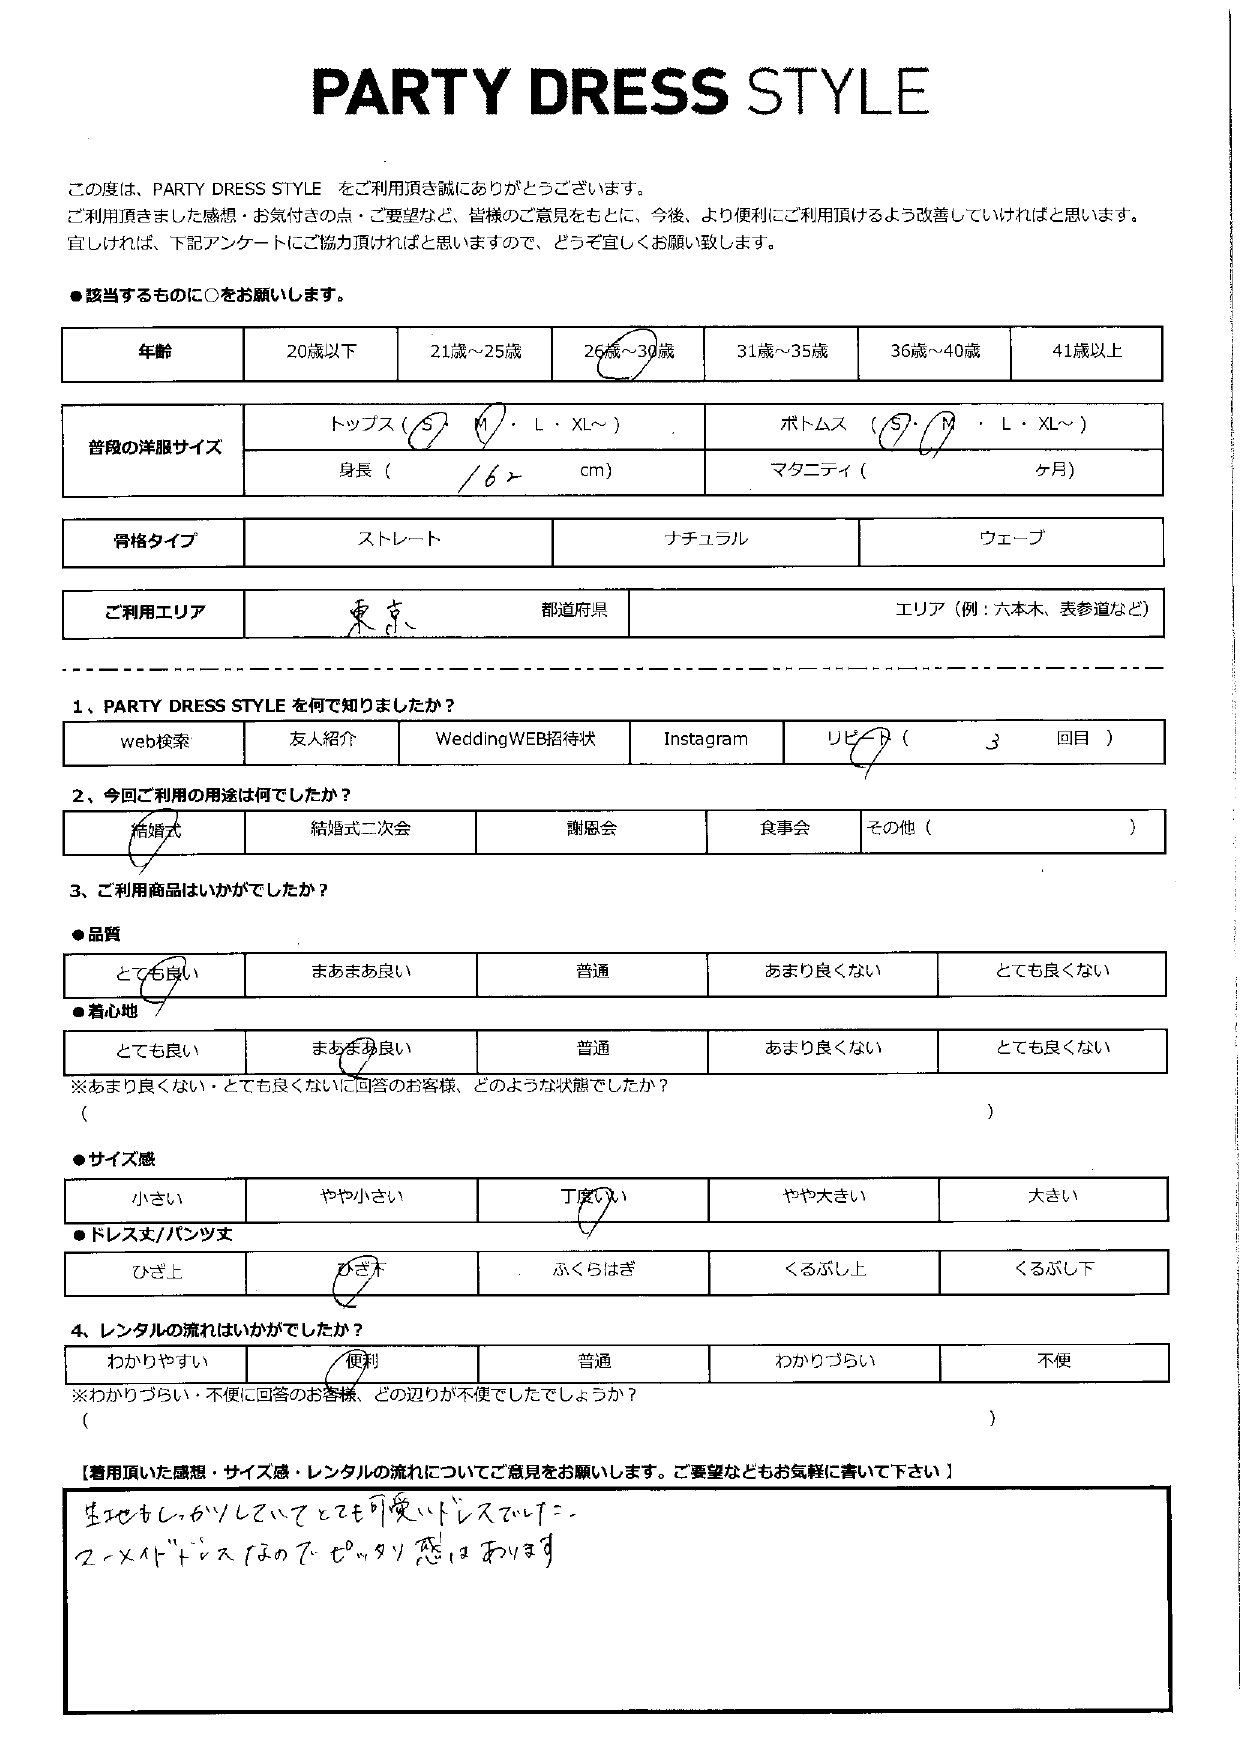 PARTY DRESS STYLE
この度は、PARTY DRESS STYLE をご利用頂き誠にありがとうございます。
ご利用頂きました感想・お気付きの点・ご要望など、皆様のご意見をもとに、今後、より便利にご利用頂けるよう改善していければと思います。
宜しければ、下記アンケートにご協力頂ければと思いますので、どうぞ宜しくお願い致します。
●該当するものに○をお願いします。
年齢 20歳以下 21歳～25歳 26歳～30歳 31歳～35歳 36歳～40歳 41歳以上
普段の洋服サイズ トップス ( S ・ M ・ L ・ XL～ ) ボトムス ( S ・ M ・ L ・ XL～ )
身長 ( 162 cm) マタニティ ( ヶ月)
骨格タイプ ストレート ナチュラル ウェーブ
ご利用エリア 東京 都道府県 エリア（例：六本木、表参道など）
1、PARTY DRESS STYLE を何で知りましたか？
web検索 友人紹介 WeddingWEB招待状 Instagram リピート ( 3 回目 )
2、今回ご利用の用途は何でしたか？
結婚式 結婚式二次会 謝恩会 食事会 その他 ( )
3、ご利用商品はいかがでしたか？
●品質
とても良い まあまあ良い 普通 あまり良くない とても良くない
●着心地
とても良い まあまあ良い 普通 あまり良くない とても良くない
※あまり良くない・とても良くないに回答のお客様、どのような状態でしたか？
( )
●サイズ感
小さい やや小さい 丁度いい やや大きい 大きい
●ドレス丈/パンツ丈
ひざ上 ひざ下 ふくらはぎ くるぶし上 くるぶし下
4、レンタルの流れはいかがでしたか？
わかりやすい 便利 普通 わかりづらい 不便
※わかりづらい・不便に回答のお客様、どの辺りが不便でしたでしょうか？
( )
【着用頂いた感想・サイズ感・レンタルの流れについてご意見をお願いします。ご要望などもお気軽に書いて下さい 】
生地もしっかりしていてとても可愛いドレスでした。
マーメイドドレスなのでピッタリ感はあります